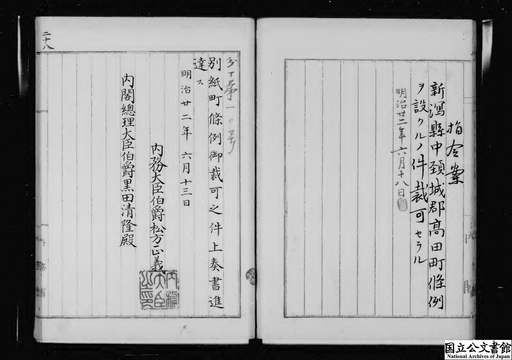 指令案
新潟縣中頚城郡髙田町條例
ヲ設クルノ件裁可セラル
明治廿二年六月十八日
別紙町條例御裁可之件上奏書進
達ス
明治廿二年六月十三日
内務大臣伯爵松方正義
内務大臣之印
内閣總理大臣伯爵黒田清隆殿
二十八
国立公文書館
National Archives of Japan